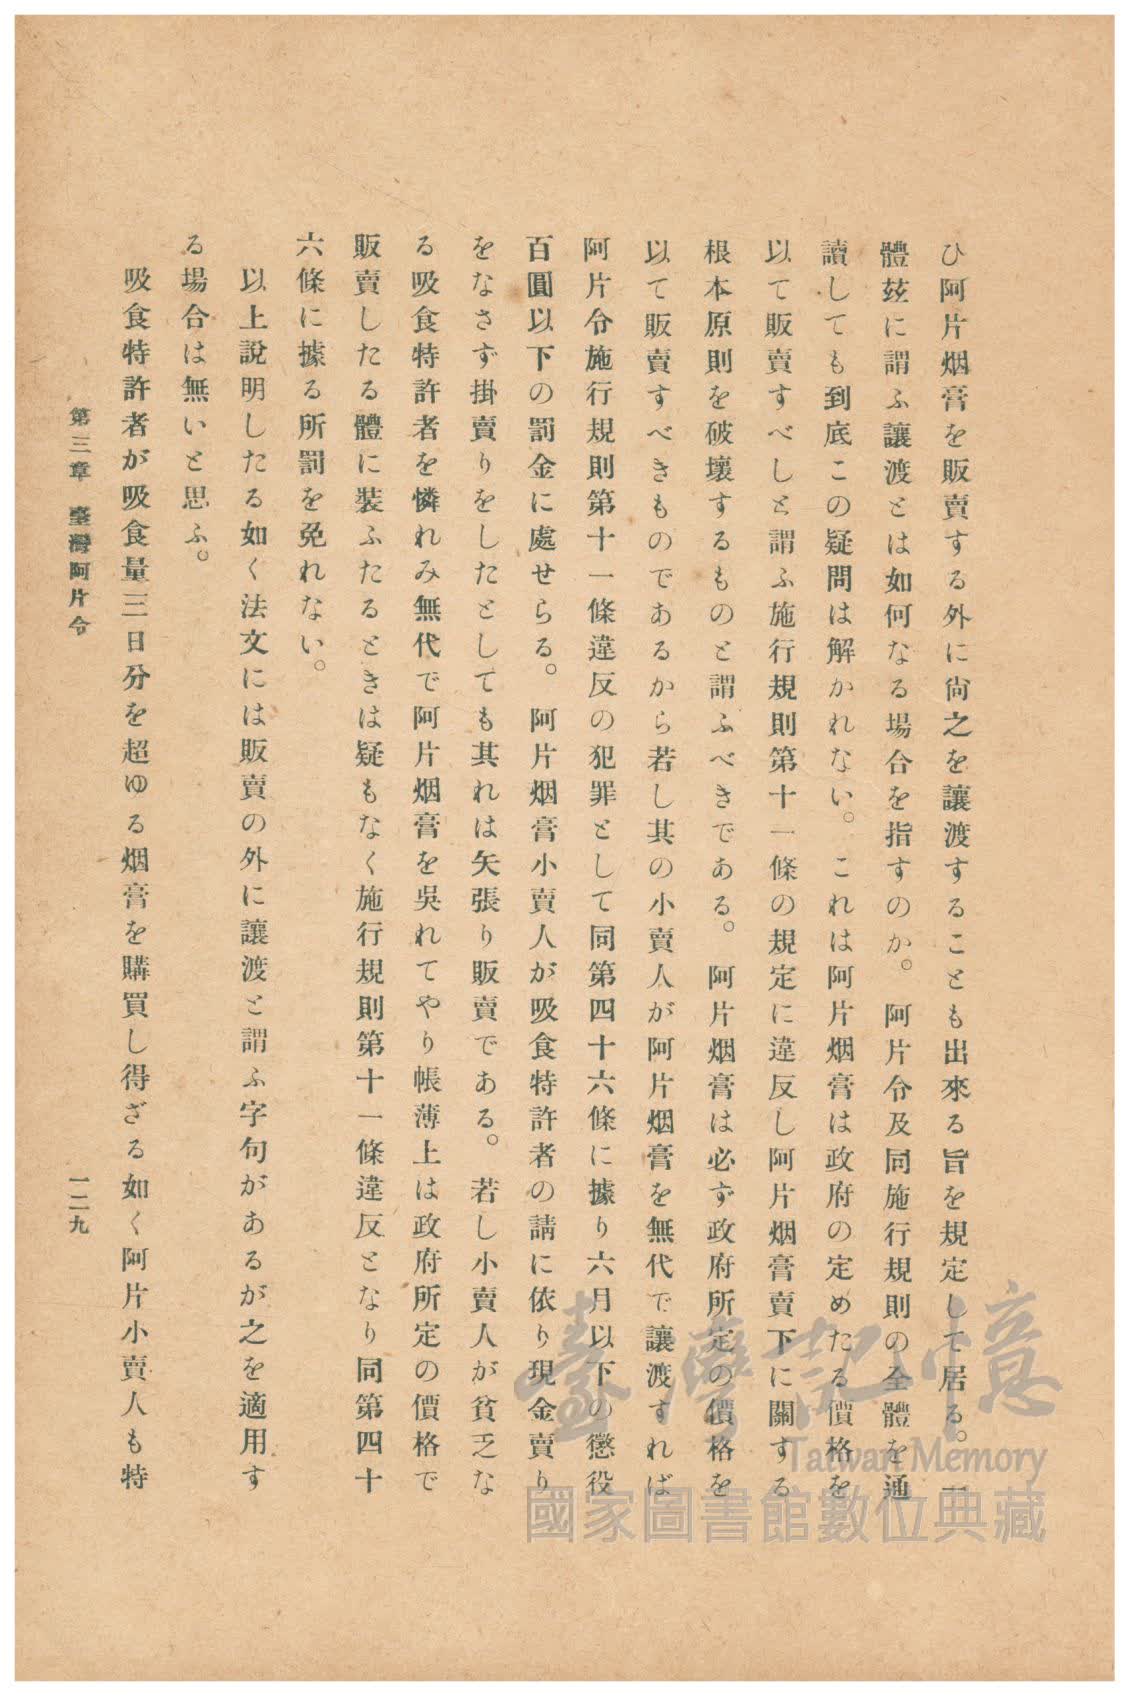 ひ阿片烟膏を販賣する外に尙之を讓渡することも出來る旨を規定して居る。一
體玆に謂ふ讓渡とは如何なる場合を指すのか。阿片令及同施行規則の全體を通
讀しても到底この疑問は解かれない。これは阿片烟膏は政府の定めたる價格を
以て販賣すべしと謂ふ施行規則第十一條の規定に違反し阿片烟膏賣下に關する
根本原則を破壞するものと謂ふべきである。阿片烟膏は必ず政府所定の價格を
以て販賣すべきものであるから若し其の小賣人が阿片烟膏を無代で讓渡すれば
阿片令施行規則第十一條違反の犯罪として同第四十六條に據り六月以下の懲役
百圓以下の罰金に處せらる。阿片烟膏小賣人が吸食特許者の請に依り現金賣り
をなさず掛賣りをしたとしても其れは矢張り販賣である。若し小賣人が貧乏な
る吸食特許者を憐れみ無代で阿片烟膏を吳れてやり帳薄上は政府所定の價格で
販賣したる體に裝ふたるときは疑もなく施行規則第十一條違反となり同第四十
六條に據る所罰を免れない。
以上說明したる如く法文には販賣の外に讓渡と謂ふ字句があるが之を適用す
る場合は無いと思ふ。
吸食特許者が吸食量三日分を超ゆる烟膏を購買し得ざる如く阿片小賣人も特
第三章 臺灣阿片令 一二九
臺灣記憶
Taiwan Memory
國家圖書館數位典藏